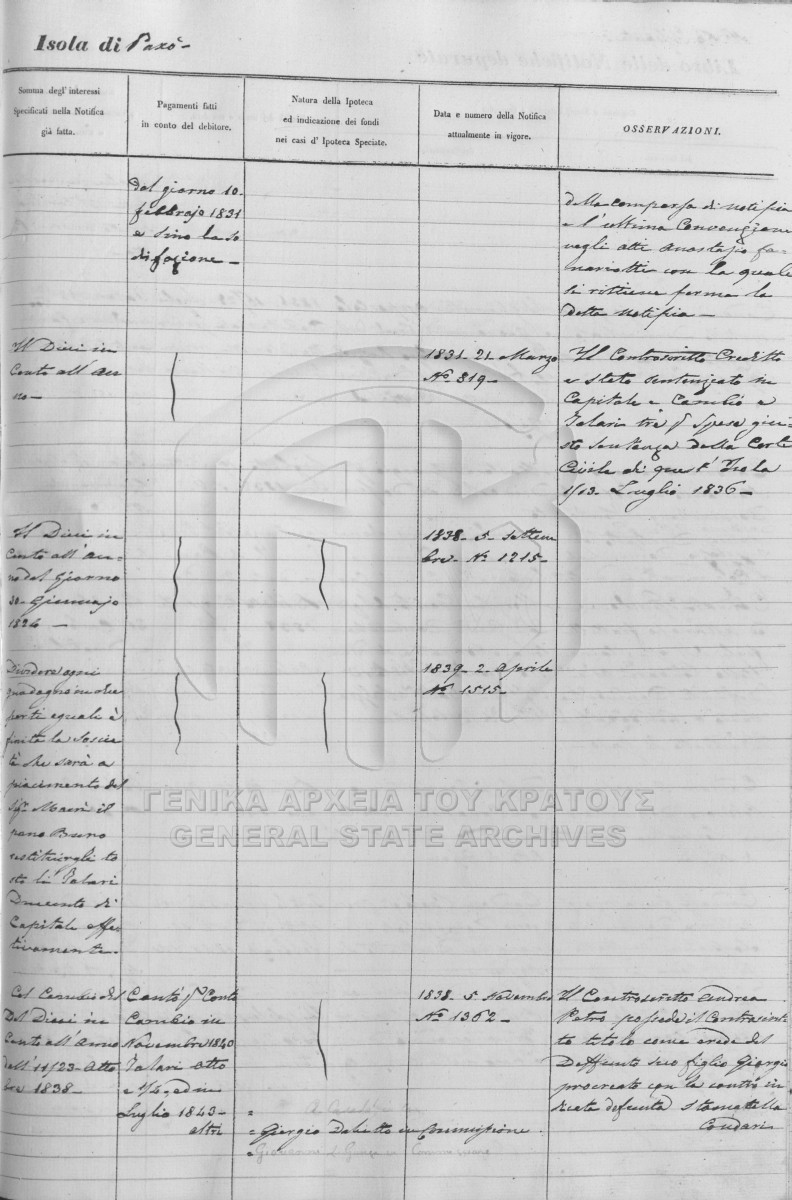 Isola di Paxò
Somma degl' interessi
Specificati nella Notifica
già fatta.
Pagamenti fatti
in conto del debitore.
Natura della Ipoteca
ed indicazione dei fondi
nei casi d' Ipoteca Speciate.
Data e numero della Notifica
attualmente in vigore.
OSSERVAZIONI.
dal giorno 10
febbrajo 1831
e sino la so
disfazione
della comparsa di notifia
e l'ultima Convenzione
negli atti Anastasio
con la quale
si rittiene ferma la
detta notifia
Il Dieci in
Cento all' an
no
1831 21 Marzo
No 819
Il Controscritto Creditto
e stato sentenziato in
Capitale e Cambio e
Talari tre p Spese giu
sto sentenza della Corte
Civile di quest' Isola
1/13 Luglio 1836
Il Dieci in
Cento all' an
no dal Giorno
30 Gennajo
1834
1838 5 Settem
bre No 1215
Dividere ogni
guadagno in due
parti eguali e
finita la Socie
tà che sarà a
piacimento del
Sigr il
Bruno
restituirgli to
sto li Talari
Duecento di
Capitale effe
tivamente
1839 2 Aprile
No 1515
Col Cambio del
Del Dieci in
Cento all' Anno
dall' 11/23 Otto
bre 1838
Contò p Conto
Cambio in
Novembre 1840
Talari Otto
e 1/4, ed in
Luglio 1843
altri
1838 5 Novembre
No 1362
Il Controscritto Andrea
Petro possede il Controscrit
to titolo come erede del
Deffunto suo figlio Giorgio
procreato con la contro in
dicata defunta Stamatella
Condari
Giorgio in Commissione
ΓΕΝΙΚΑ ΑΡΧΕΙΑ ΤΟΥ ΚΡΑΤΟΥΣ
GENERAL STATE ARCHIVES